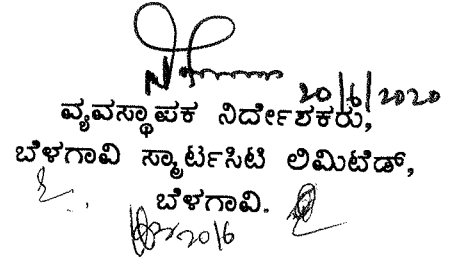 20/6/2020
ವ್ಯವಸ್ಥಾಪಕ ನಿರ್ದೇಶಕರು,
ಬೆಳಗಾವಿ ಸ್ಮಾರ್ಟಸಿಟಿ ಲಿಮಿಟೆಡ್,
ಬೆಳಗಾವಿ.
20/6